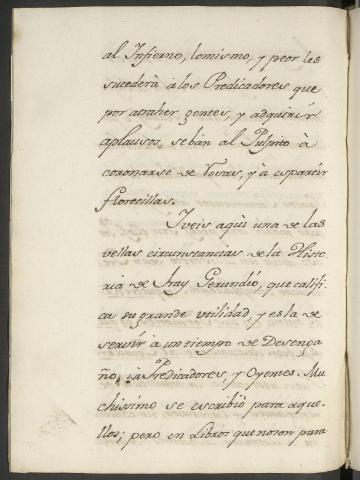 al Infierno, lo mismo, y peor les
sucederà à los Predicadores que
por atraher gentes, y adquirir
aplausos, se bàn al Pulpito à
coronarse de Rosas, y à esparcir
florecillas.
Iveis aqui una de las
vellas circunstancias de la Histo
ria de Fray Gerundio, que califi
ca su grande utilidad, y es la de
servir à un tiempo de Desenga
ño, à Predicadores, y Oyentes. Mu
chissimo se escribiò para aque-
llos; pero en Libros que no son para